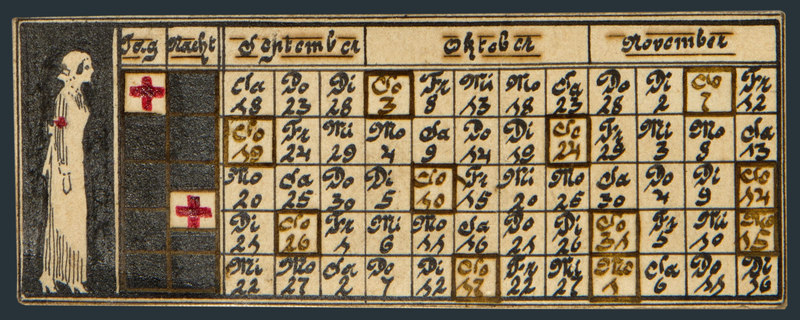 Tag Nacht September Oktober November
Sa Do Di So Fr Mi Mo Sa Do Di So Fr
18 23 28 3 8 13 18 23 28 2 7 12
So Fr Mi Mo Sa Do Di So Fr Mi Mo Sa
19 24 29 4 9 14 19 24 29 3 8 13
Mo Sa Do Di So Fr Mi Mo Sa Do Di So
20 25 30 5 10 15 20 25 30 4 9 14
Di So Fr Mi Mo Sa Do Di So Fr Mi Mo
21 26 1 6 11 16 21 26 31 5 10 15
Mi Mo Sa Do Di So Fr Mi Mo Sa Do Di
22 27 2 7 12 17 22 27 1 6 11 16